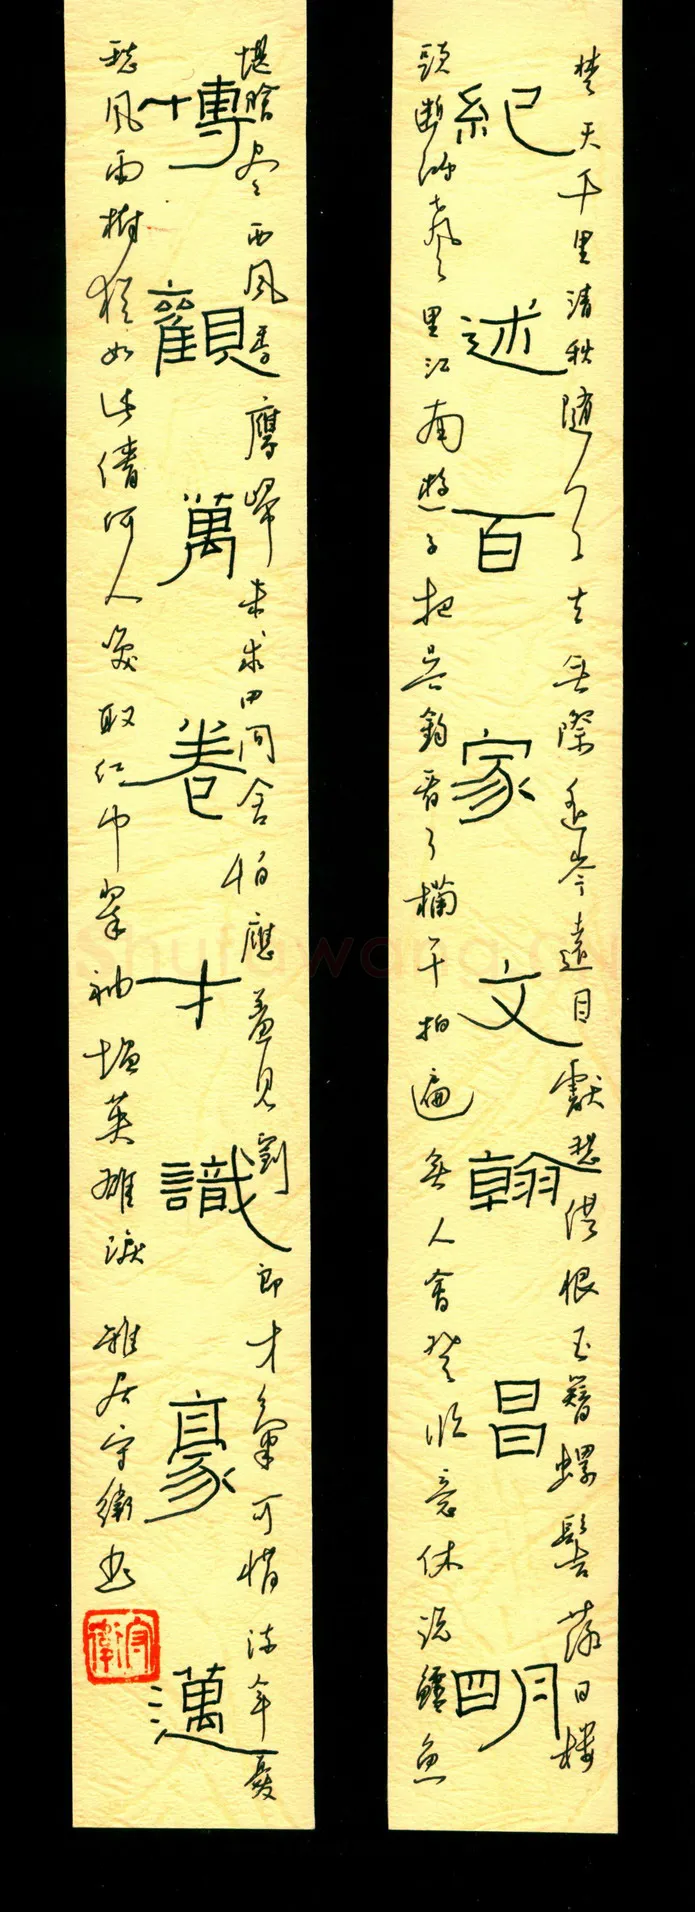 楚天千里清秋隨去無際遙岑遠目獻愁供恨玉簪螺髻落日樓
紀述百家文翰昌明
頭斷鴻聲里江南遊子把吳鈎看了欄干拍遍無人會登臨意休説鱸魚
堪膾尽西風季鷹歸未求田問舍怕應羞見劉郎才氣可惜流年憂
博觀萬卷才識豪邁
愁風雨樹猶如此倩何人喚取紅巾翠袖搵英雄淚 雅居守衛書
守衛
Shufawang.cn